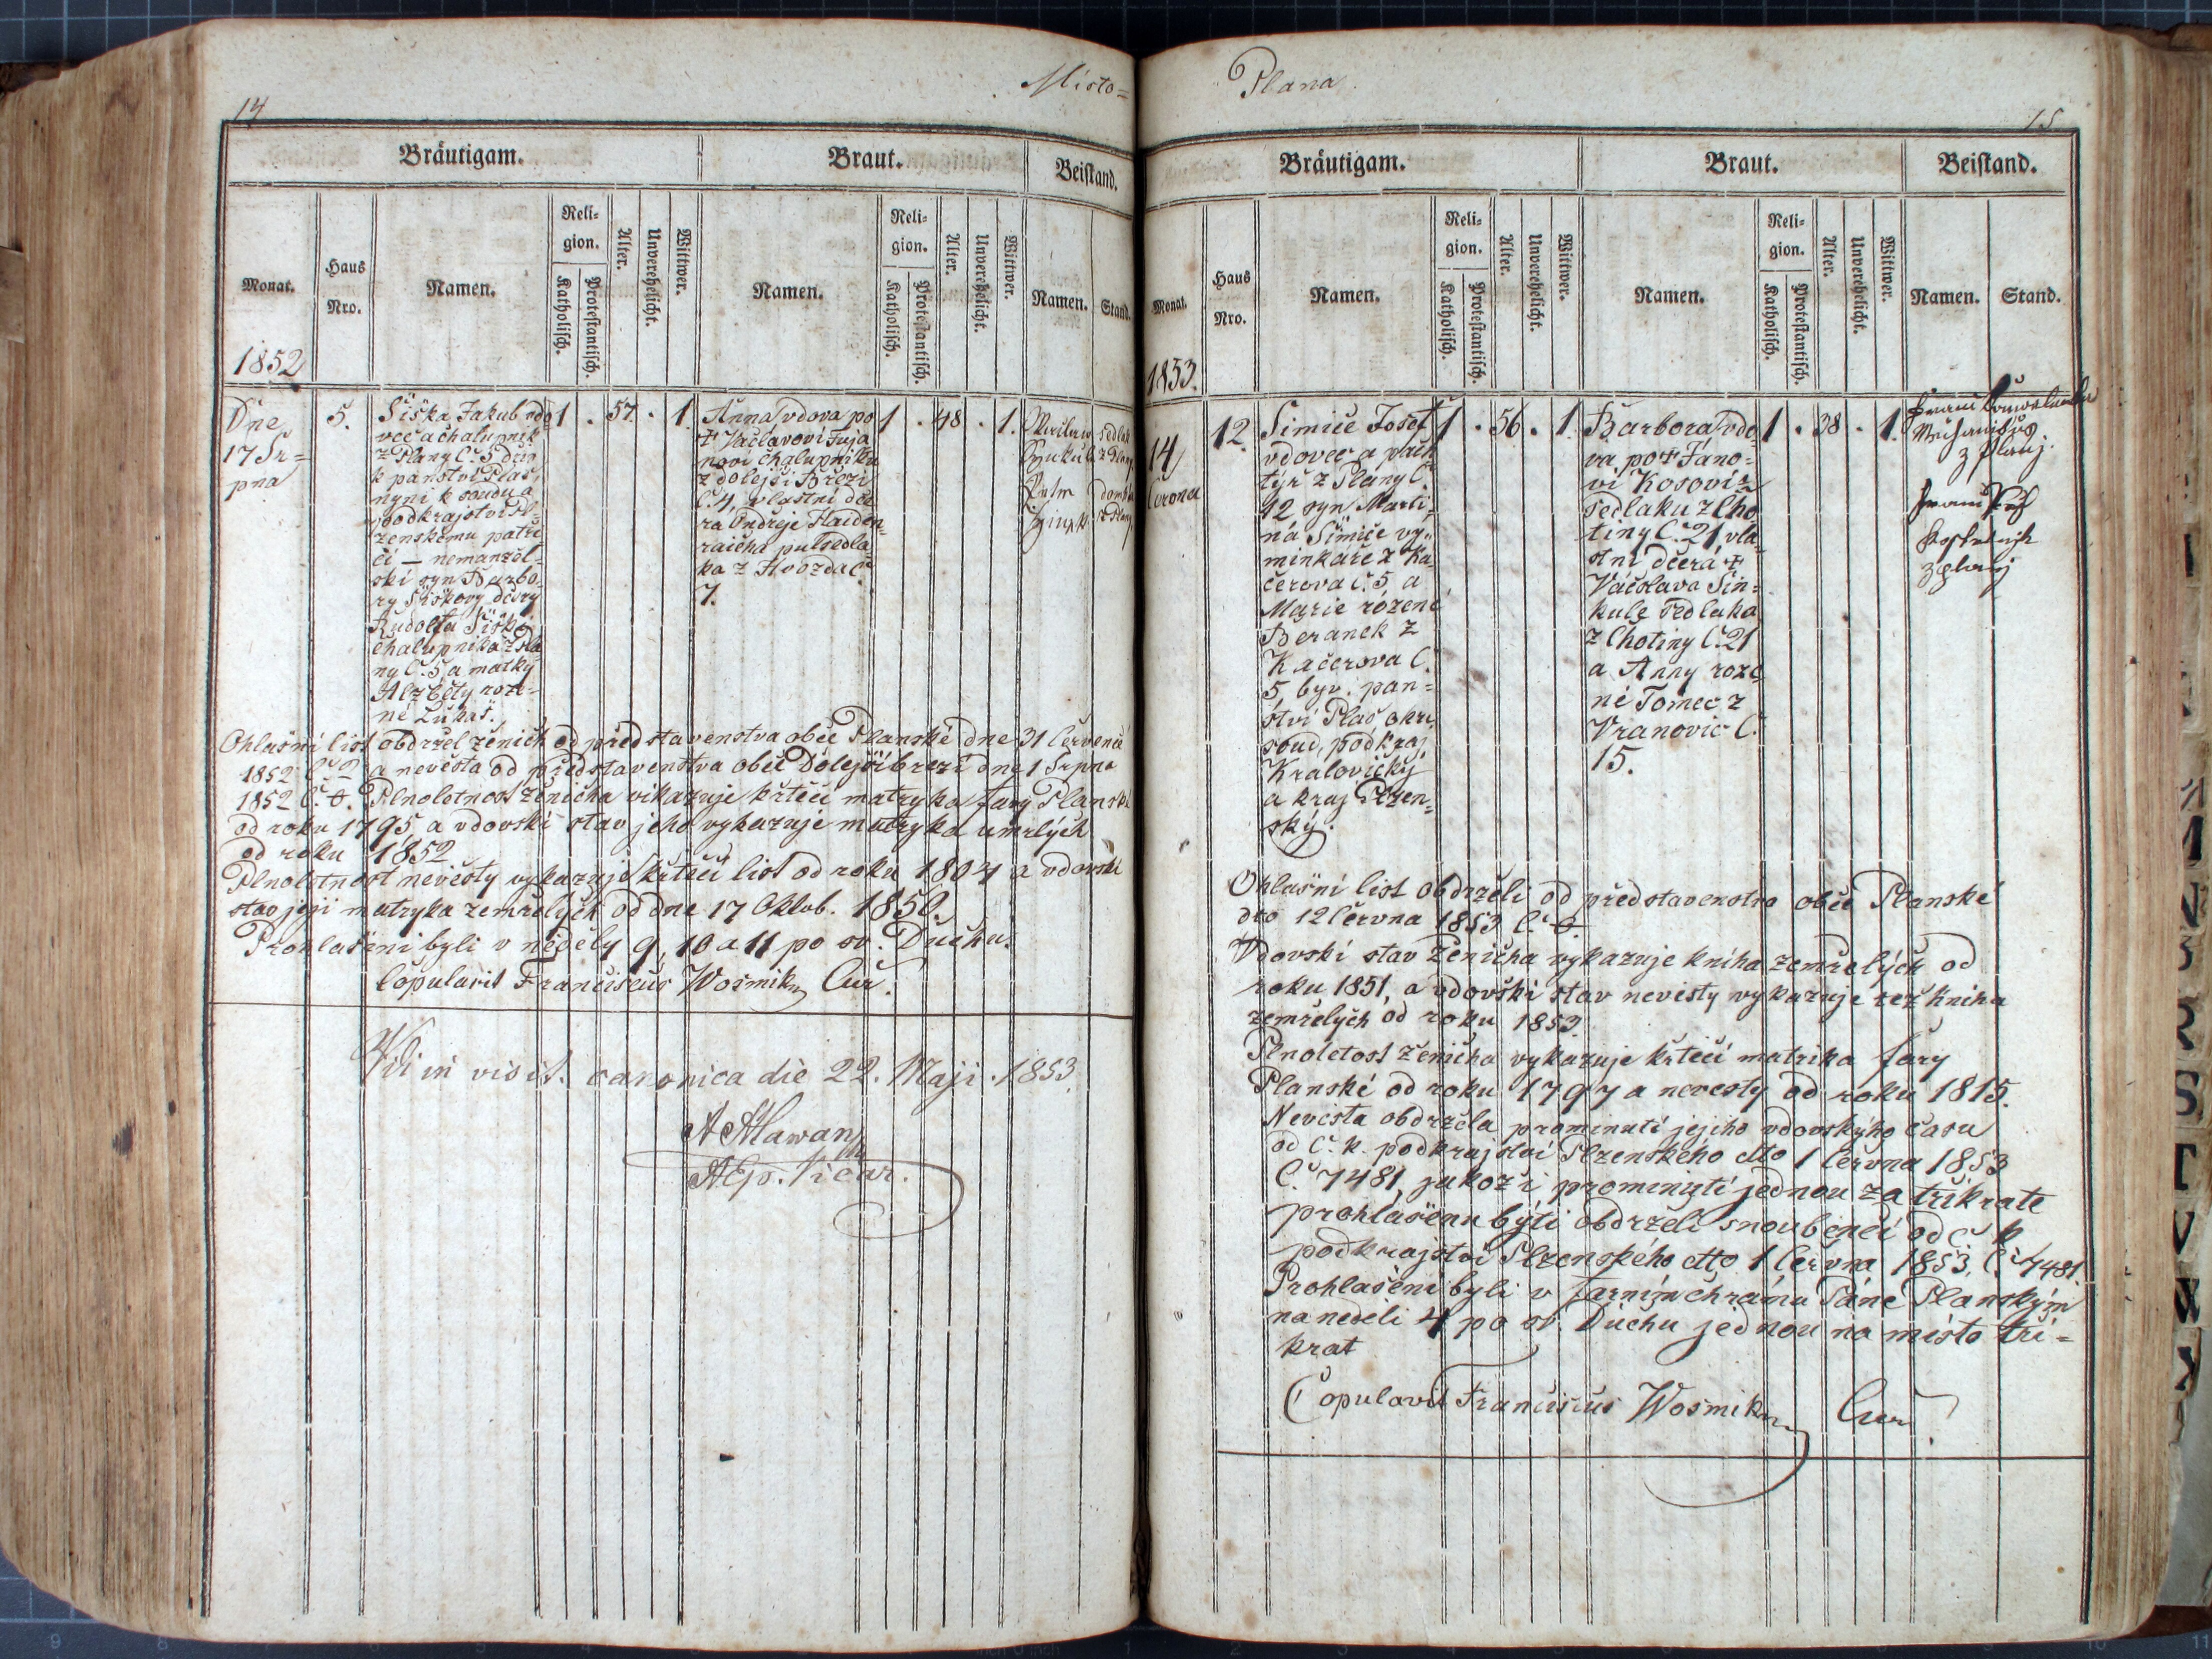 14
Misto=
Bräutigam.
Braut.
Beistand.
Monat.
Haus Nro.
Namen.
Religion.
Katholisch.
Protestantisch.
Alter.
Unverehelicht.
Wittwer.
Namen.
Religion.
Katholisch.
Protestantisch.
Alter.
Unverehelicht.
Wittwer.
Namen.
Stand.
1852
Dne
17 Sr=
pna
5.
Šiška Jakub vdo
vec a chalupník
z Plany Č. 5 dův
k panství Plas,
nyní k soudu a
podkrajství Pl=
zenskému patří=
cí — nemanžel=
ski syn Barbo
ry Šiškovy dcery
Rudolfa Šišky
chalupnika z Pla
ny Č. 5, a matky
Alžběty roze=
né Lukáš.
1 . 57 . 1.
Anna vdova po
† Václavovi Fuja
novi chalupniku
z dolejší Březi
Č. 4, vlastní dce
ra Ondřeje Haiden
raicha pulsedla
ka z Hvozda Č.
7.
1 . 48 . 1.
sedlak
z Plany
Ohlašní list obdržel ženich od představenstva obce Planské dne 31 Července
1852 a nevěsta od představenstva obce Dolejšíbrezí dne 1 Srpna
1852 Č. 0. Plnoletnost ženicha vikazuje křtěcí matryka fary Planské
od roku 1795 a vdovski stav jeho vykazuje matryka umrlých
od roku 1852
Plnoletnost nevěsty vykazuje křtěcí list od roku 1804 a vdovski
stav její matryka zemřelých od dne 17 Oktob. 1850.
Prohlašeni byli v neděly 9, 10 a 11 po sv. Duchu.
Copulavit Franciscus Wosmik, Cur.
Vidi in visit. canonica die 22. Maji. 1853
15
Plana
Bräutigam.
Braut.
Beistand.
Monat.
Haus Nro.
Namen.
Religion.
Katholisch.
Protestantisch.
Alter.
Unverehelicht.
Wittwer.
Namen.
Religion.
Katholisch.
Protestantisch.
Alter.
Unverehelicht.
Wittwer.
Namen.
Stand.
1853.
14
Června
12.
Simiče Josef
vdovec a pach
týř z Plany Č.
12 syn Marti=
na Šimiče vý=
minkaře z Ka
čerova č. 5 a
Marie rózené
Beranek z
Kačerova Č.
5, byv. pan=
ství Plas okr.
soud, podkraj.
Kralovický
a kraj Plzen=
ský.
1 . 56 . 1.
Barbora vdo
va po † Jáno=
vi Kosovi z
sedlaku z Cho
tiny Č. 21, vla
stní dcera †
Váčslava Sin=
kule sedlaka
z Chotiny Č. 21
a Anny roze
né Tomec z
Vranovic Č.
15.
1 . 38 . 1.
z Plany.
Ohlašni list obdrželi od představenstva obce Planské
dto 12 Června 1853 Č. 0.
Vdovski stav Ženicha vykazuje kniha zemřelých od
roku 1851, a vdovski stav nevěsty vykazuje též kniha
zemřelych od roku 1853
Plnoletost Ženicha vykazuje křtěcí matrika fary
Planské od roku 1797 a nevesty od roku 1815.
Nevěsta obdržela prominutí jejího vdovského času
od C. k. podkrajství Plzenského dtto 1 Června 1853
Č. 7481, jakož i prominutí jednou za tříkrate
prohlašenu býti obdrželi snoubenci od C k
podkrajství Plzenského dtto 1 Června 1853, Č. 7481
Prohlašeni byli v farním chrámu Páně Planským
na neděli 4 po sv. Duchu jednou na místo tří=
krat
Copulavit Franciscus Wosmik, Cur